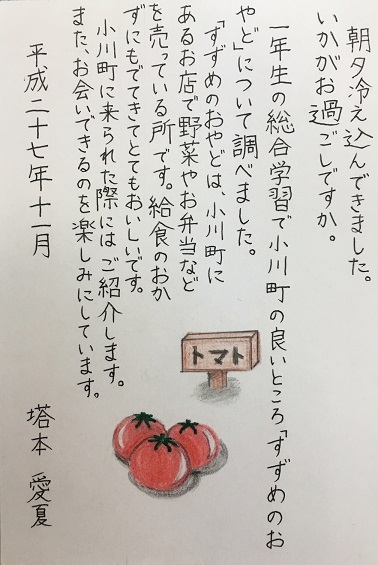 朝夕冷え込んできました。
いかがお過ごしですか。
一年生の総合学習で小川町の良いところ「すずめのお
やど」について調べました。
「すずめのおやどは、小川町に
あるお店で野菜やお弁当など
を売っている所です。給食のおか
ずにもでてきてとてもおいしいです。
小川町に来られた際にはご紹介します。
また、お会いできるのを楽しみにしています。
平成二十七年十一月
塔本 愛夏
トマト